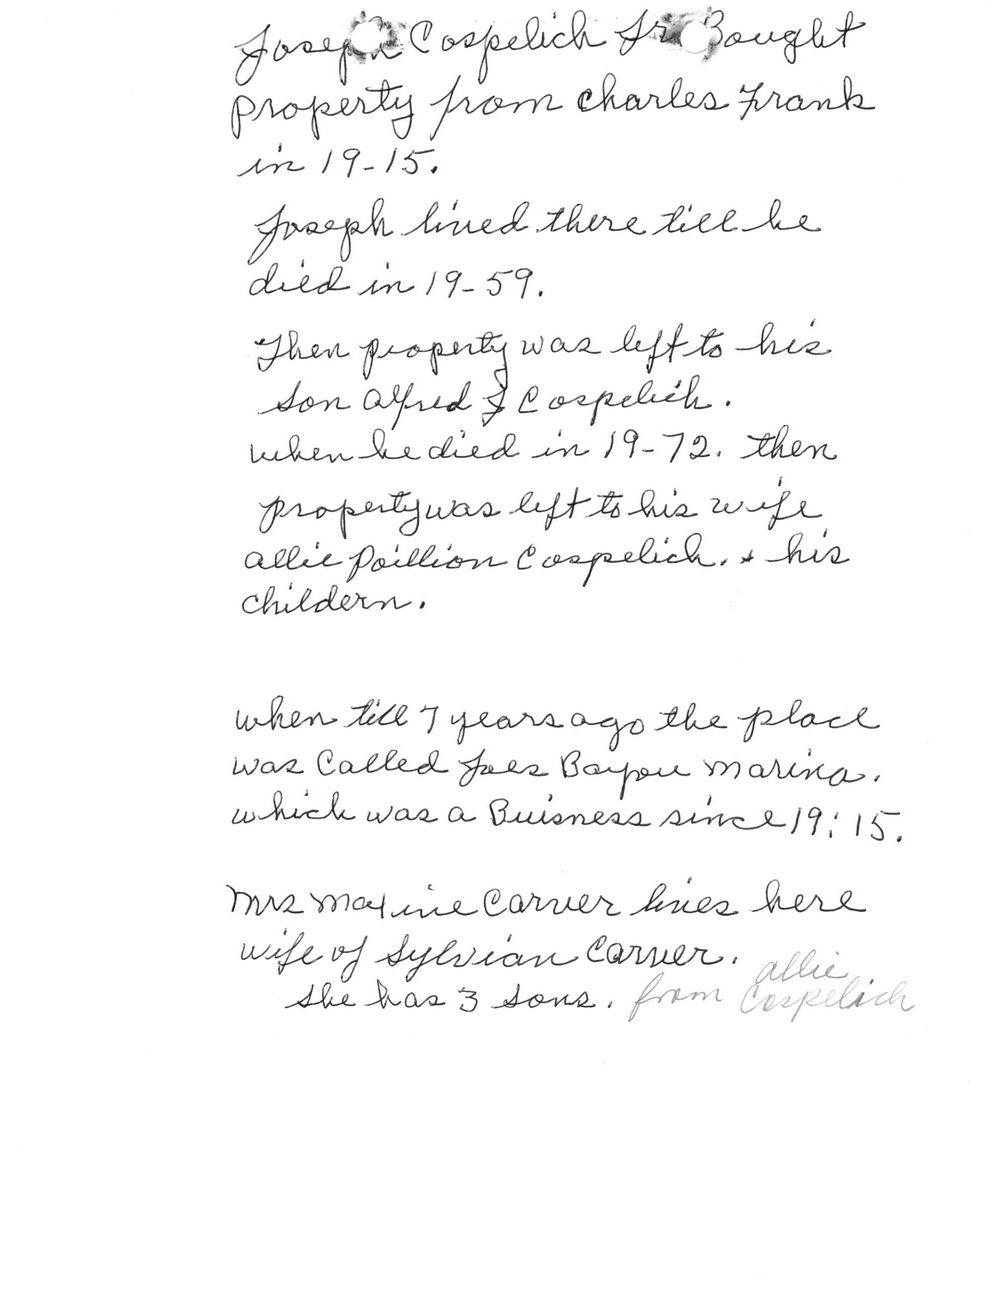 Joseph Cospelich Jr Bought
property from Charles Frank
in 19-15.
Joseph lived there till he
died in 19-59.
Then property was left to his
son Alfred J Cospelich.
when he died in 19-72. then
property was left to his wife
Allie Poillion Cospelich. & his
childern.
when till 7 years ago the place
was Called Joes Bayou Marina.
which was a Buisness since 19:15.
Mrs Maxine Carver lives here
wife of Sylvian Carver.
she has 3 sons. from Allie Cospelich